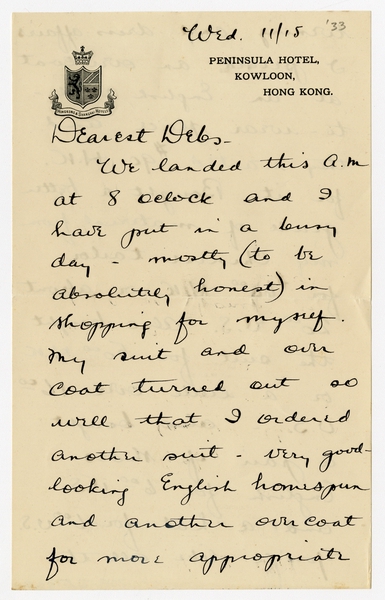 Wed. 11/15 '33
PENINSULA HOTEL,
KOWLOON,
HONG KONG.
Dearest Debs-
We landed this A.M
at 8 oclock and I
have put in a busy
day - mostly (to be
absolutely honest) in
shopping for myself.
My suit and over
coat turned out so
well that I ordered
another suit - very good-
looking English homespun
and another overcoat
for more appropriate